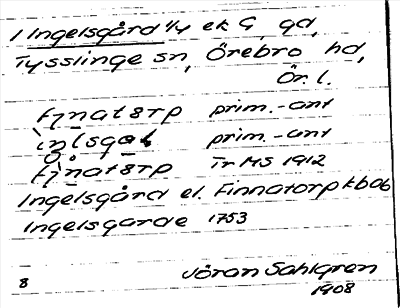 1 Ingelsgård 1/4 ek G, gd,
Tysslinge sn, Örebro hd,
Ör. l.
fınatωrp prim.-ant
prim.-ant
Tr MS 1912
Ingelsgård el. Finnatorp kbob
Ingelsgarde 1753
Jöran Sahlgren
8 1908